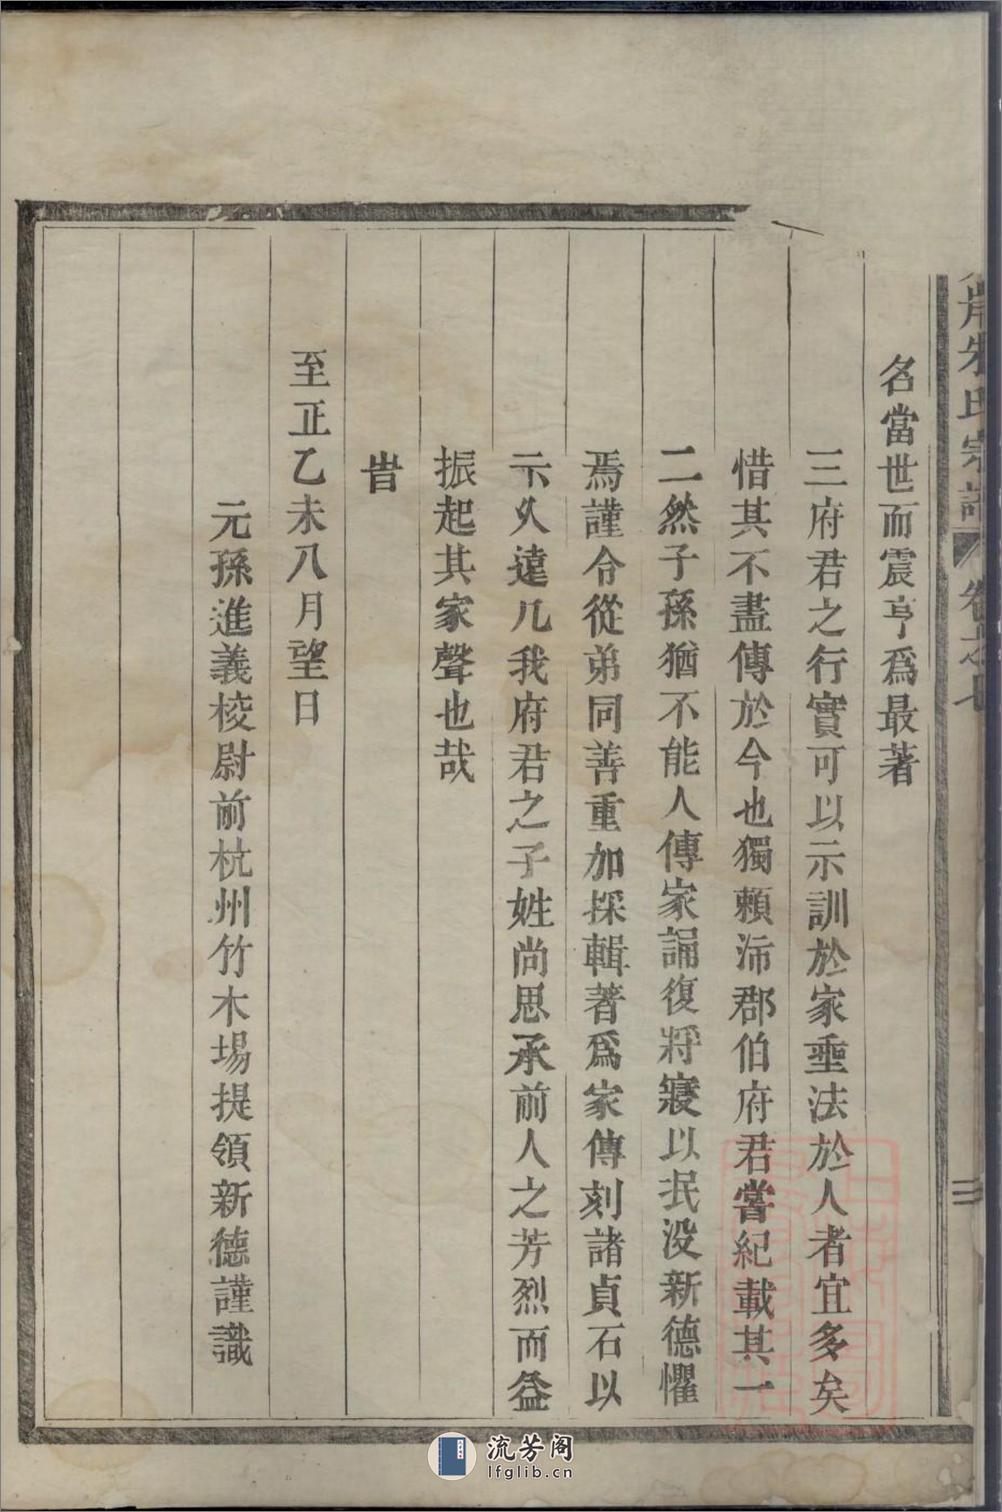 名當世而震亨爲最著
三府君之行實可以示訓於家垂法於人者宜多矣
惜其不盡傳於今也獨賴沛郡伯府君嘗紀載其一
二然子孫猶不能人傳家誦復將寖以泯没新德懼
焉謹令從弟同善重加採輯著爲家傳刻諸貞石以
示久遠凡我府君之子姓尚思承前人之芳烈而益
振起其家聲也哉
旹
至正乙未八月望日
元孫進義校尉前杭州竹木場提領新德謹識
朱氏宗譜
卷之
三
流芳阁
lfglib.cn